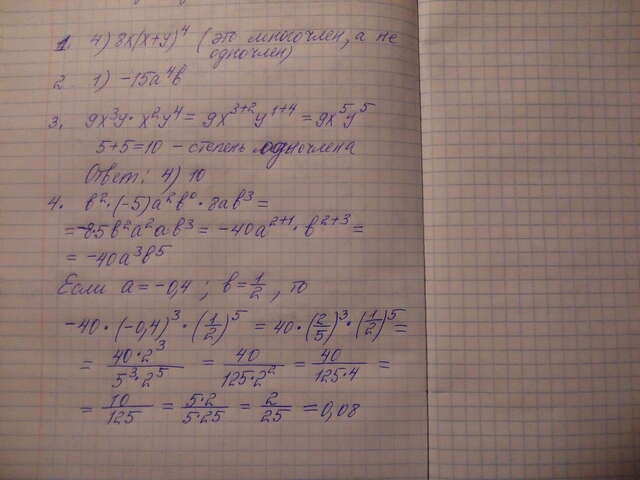 1. 4) 8x(x+y)⁴ (это многочлен, а не
одночлен)
2. 1) -15a⁴b
3. 9x³y · x²y⁴ = 9x³⁺²y¹⁺⁴ = 9x⁵y⁵
5+5=10 – степень одночлена
Ответ: 4) 10
4. b²·(-5)a²b⁰·8ab³ =
= -8·5b²a²ab³ = -40a²⁺¹·b²⁺³ =
= -40a³b⁵
Если a = -0,4 ; b = 1/2 , то
-40·(-0,4)³·(1/2)⁵ = 40·(2/5)³·(1/2)⁵ =
= 40·2³/5³·2⁵ = 40/125·2² = 40/125·4 =
= 10/125 = 5·2/5·25 = 2/25 = 0,08